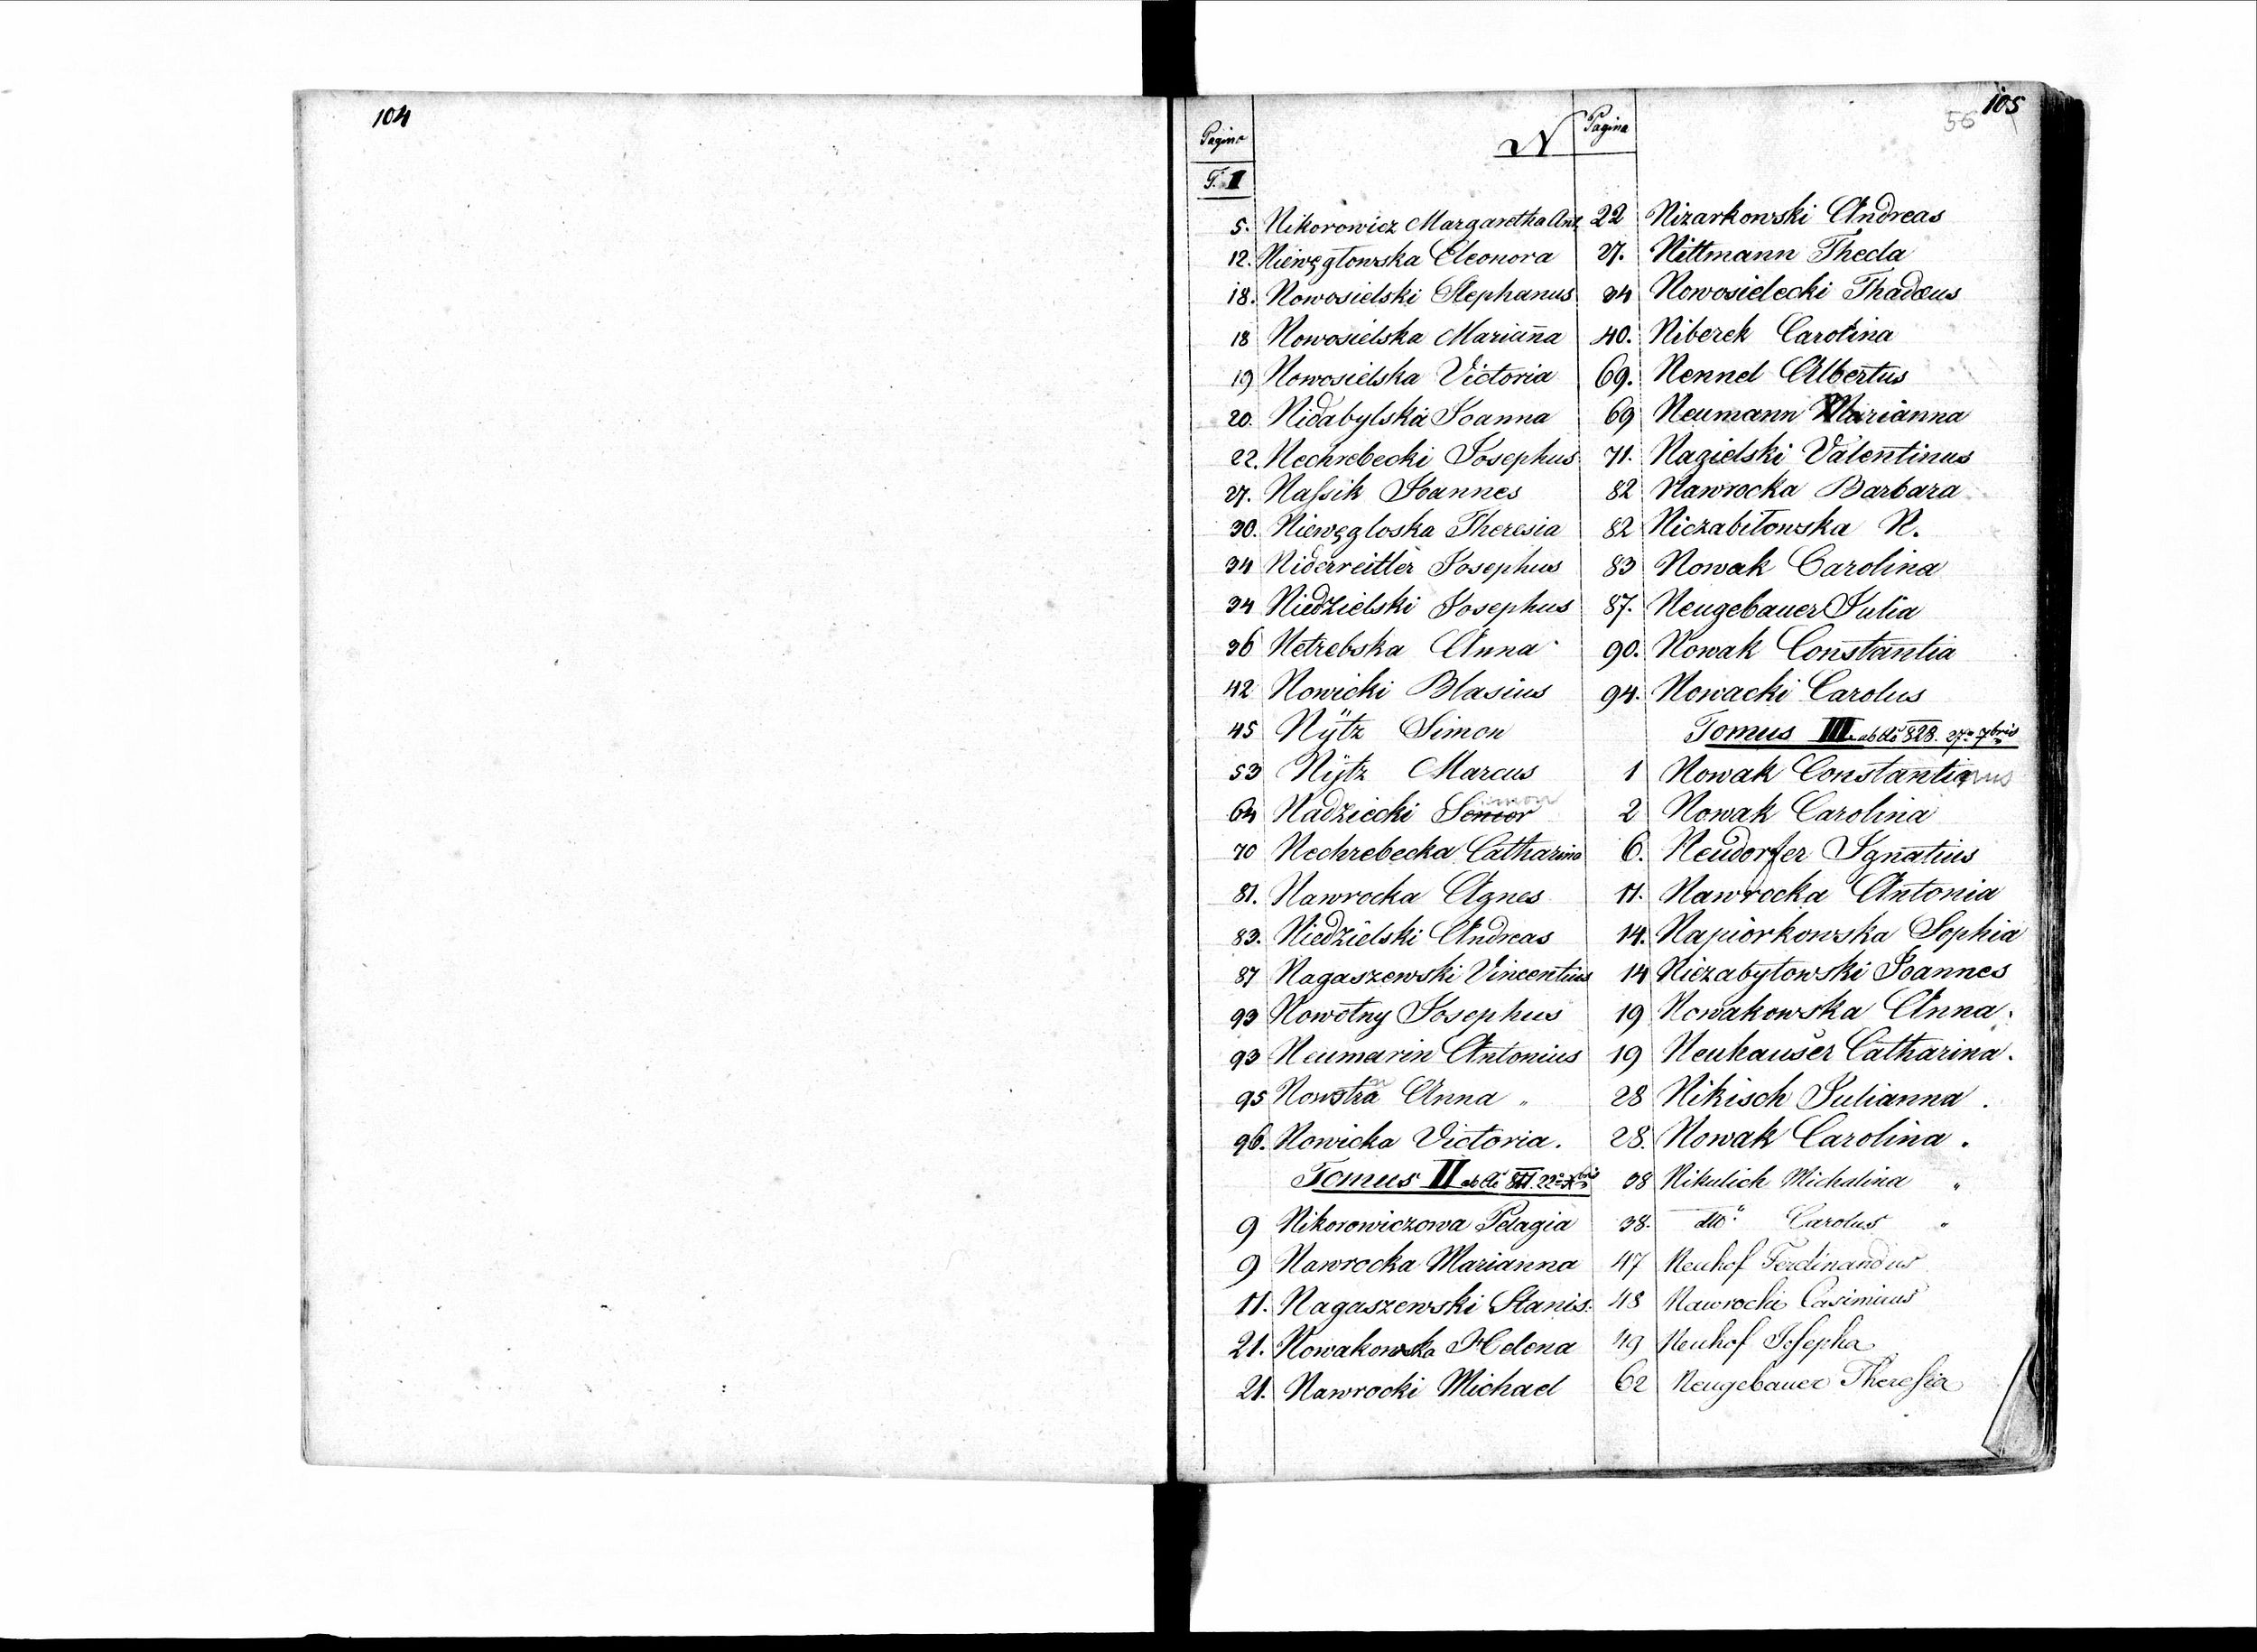 104
105
56
N
Pagina
T. II
5. Nikorowicz Margaretha Ant.
12. Niewęgłowska Eleonora
18. Nowosielski Stephanus
18 Nowosielska Mariana
19 Nowosielska Victoria
20. Nidabylska Joanna
22. Nechrebecki Josephus
27. Naſsik Joannes
30. Niewęgloska Theresia
34 Niderreitler Josephus
34 Niedzielski Josephus
36 Netrebska Anna
42 Nowicki Blasius
45 Nÿtz Simon
53 Nÿtz Marcus
64 Nadziecki Senior imon
70 Nechrebecka Catharina
81. Nawrocka Agnes
83. Niedzielski Andreas
87 Nagaszewski Vincentius
93 Nowotny Josephus
93 Neumarin Antonius
95 Nowstra Anna "
96. Nowicka Victoria.
Tomus II ab 22
9 Nikorowiczowa Pelagia
9 Nawrocka Marianna
11. Nagaszewski Stanis.
21. Nowakowska Helena
21. Nawrocki Michael
Pagina
22 Nizarkowski Andreas
27. Nittmann Thecla
34 Nowosielecki Thadæus
40. Niberek Carolina
69. Nennel Albertus
69 Neumann Marianna
71. Nagielski Valentinus
82 Nawrocka Barbara
82 Niezabitowska N.
83 Nowak Carolina
87. Neugebauer Julia
90. Nowak Constantia
94. Nowacki Carolus
Tomus III ab 828. 27a 7bris
1 Nowak Constantianus
2 Nowak Carolina
6. Neudorfer Ignatius
11. Nawrocka Antonia
14. Napiorkowska Sophia
14 Niezabytowski Joannes
19 Nowakowska Anna.
19 Neuhauser Catharina.
28 Nikisch Julianna.
28. Nowak Carolina.
38 Nikulich Michalina "
38. dtto Carolus "
47 Neuhof Ferdinandus
48 Nawrocki Casimirus
49 Neuhof Joſepha
62 Neugebauer Thereſia